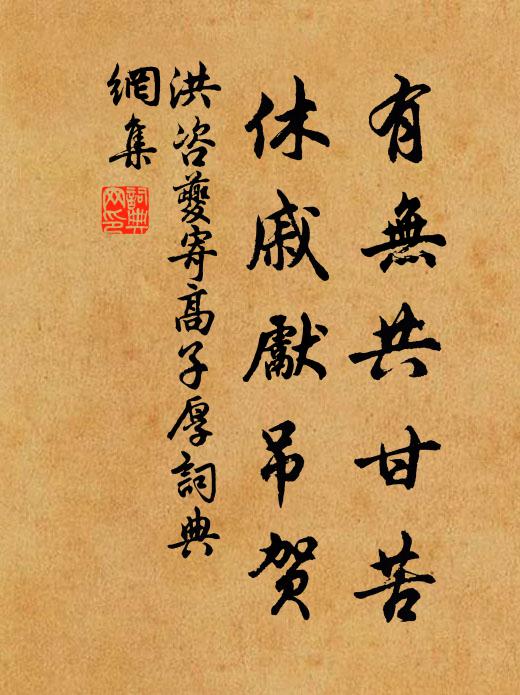 有無共甘苦
休戚獻吊賀
洪咨夔寄高子厚詞典
網集
詞典
網印